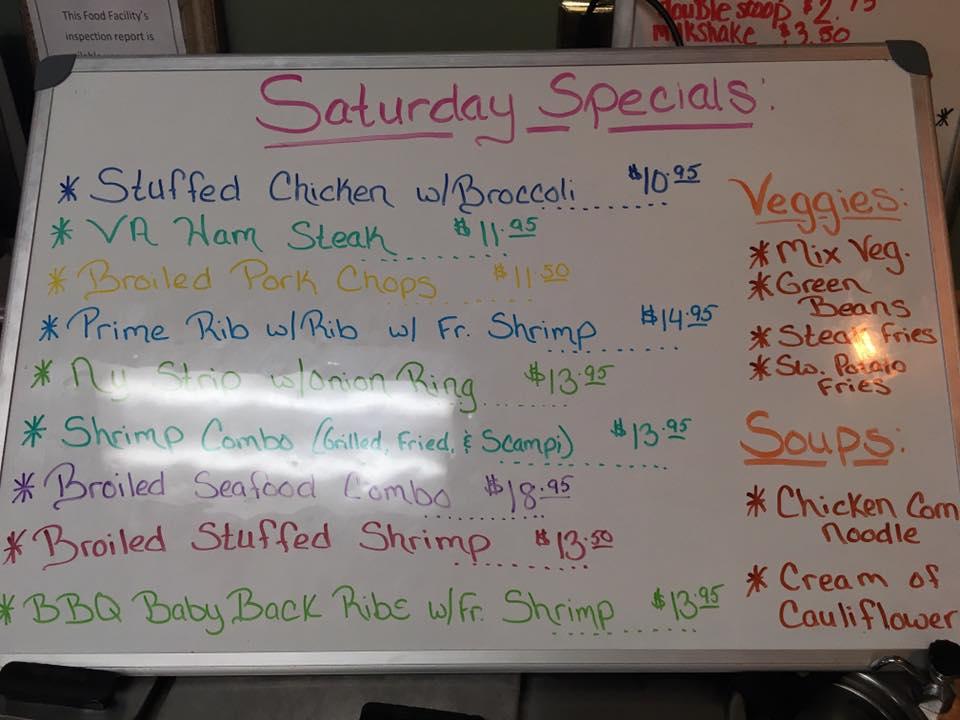 This Food Facility's
inspection report is
double scoop $2.75
milkshake $3.50
Saturday Specials:
* Stuffed Chicken w/Broccoli $10.95
* VA Ham Steak $11.95
* Broiled Pork Chops $11.50
* Prime Rib w/Rib w/ Fr. Shrimp $14.95
* Ny Strip w/onion Ring $13.95
* Shrimp Combo (Grilled, Fried, & Scampi) $13.95
* Broiled Seafood Combo $18.95
* Broiled Stuffed Shrimp $13.50
* BBQ Baby Back Ribs w/Fr. Shrimp $13.95
Veggies:
* Mix Veg.
* Green
Beans
* Steak fries
* Sw. Potato
Fries
Soups:
* Chicken Corn
noodle
* Cream of
Cauliflower